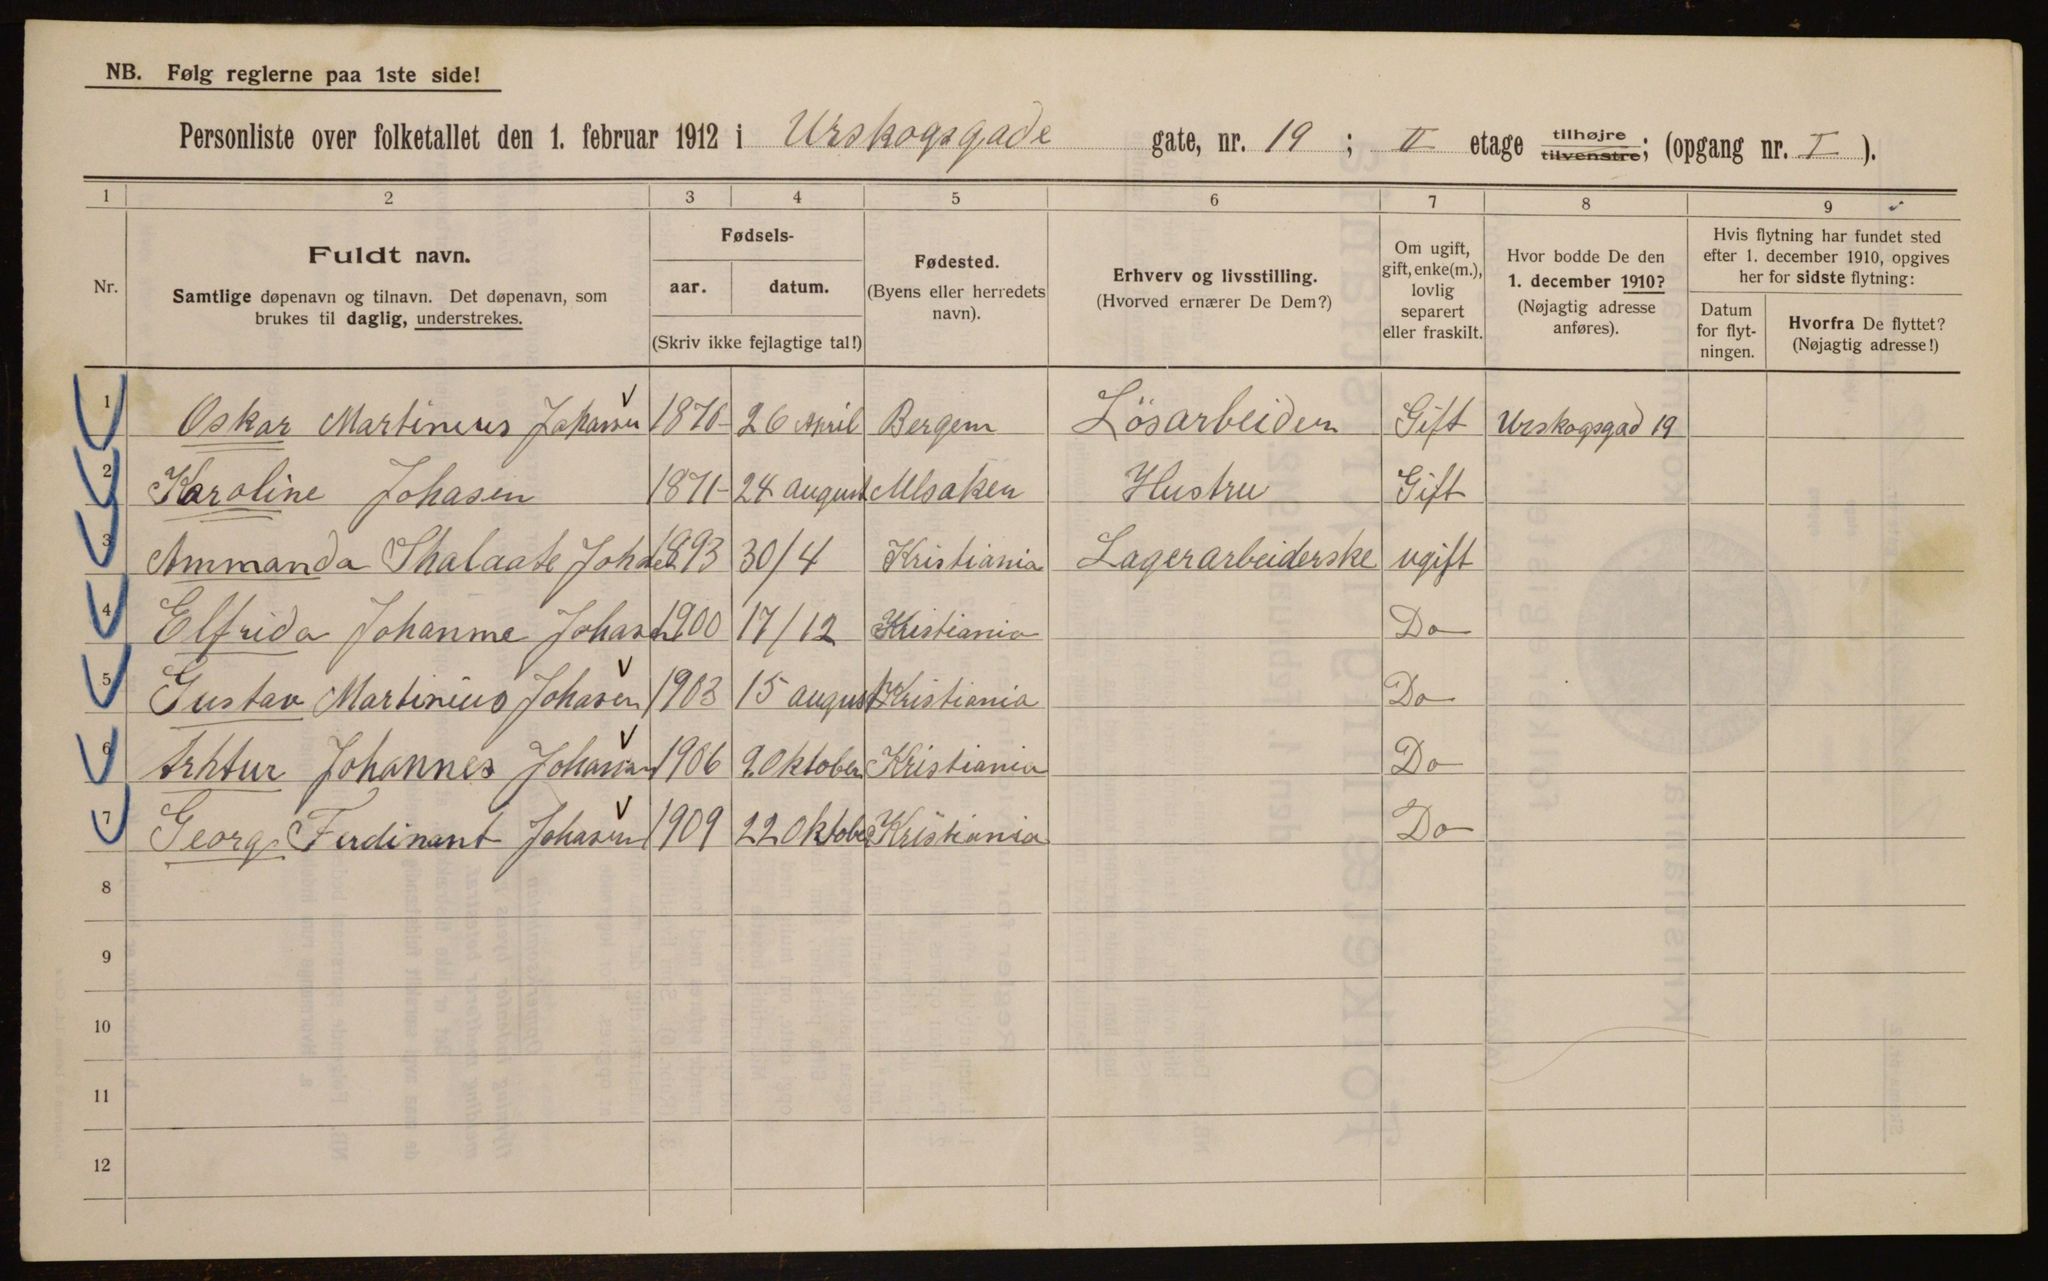 NB. Følg reglerne paa 1ste side!
Personliste over folketallet den 1. februar 1912 i Urskogsgade gate, nr. 19 ; II etage tilhøjre tilvenstre; (opgang nr. I ).
1 2 3 4 5 6 7 8 9
Nr.
Fuldt navn.
Samtlige døpenavn og tilnavn. Det døpenavn, som
brukes til daglig, understrekes.
Fødsels-
aar. datum.
(Skriv ikke fejlagtige tal!)
Fødested.
(Byens eller herredets
navn).
Erhverv og livsstilling.
(Hvorved ernærer De Dem?)
Om ugift,
gift, enke(m.),
lovlig
separert
eller fraskilt.
Hvor bodde De den
1. december 1910?
(Nøjagtig adresse
anføres).
Hvis flytning har fundet sted
efter 1. december 1910, opgives
her for sidste flytning:
Datum
for flyt-
ningen.
Hvorfra De flyttet?
(Nøjagtig adresse!)
1 Oskar Martinius Johasen 1870 26 April Bergen Lösarbeider Gift Urskogsgad 19
2 Karoline Johasen 1871 24 august Hustru Gift
3 Ammanda Johasen 1893 30/4 Kristiania Lagerarbeiderske ugift
4 Elfrida Johanme Johasen 1900 17/12 Kristiania Do
5 Gustav Martinius Johasen 1903 15 august Kristiania Do
6 Arhtur Johannes Johasen 1906 9 Oktober Kristiania Do
7 Georg Ferdinant Johasen 1909 22 Oktober Kristiania Do
8
9
10
11
12